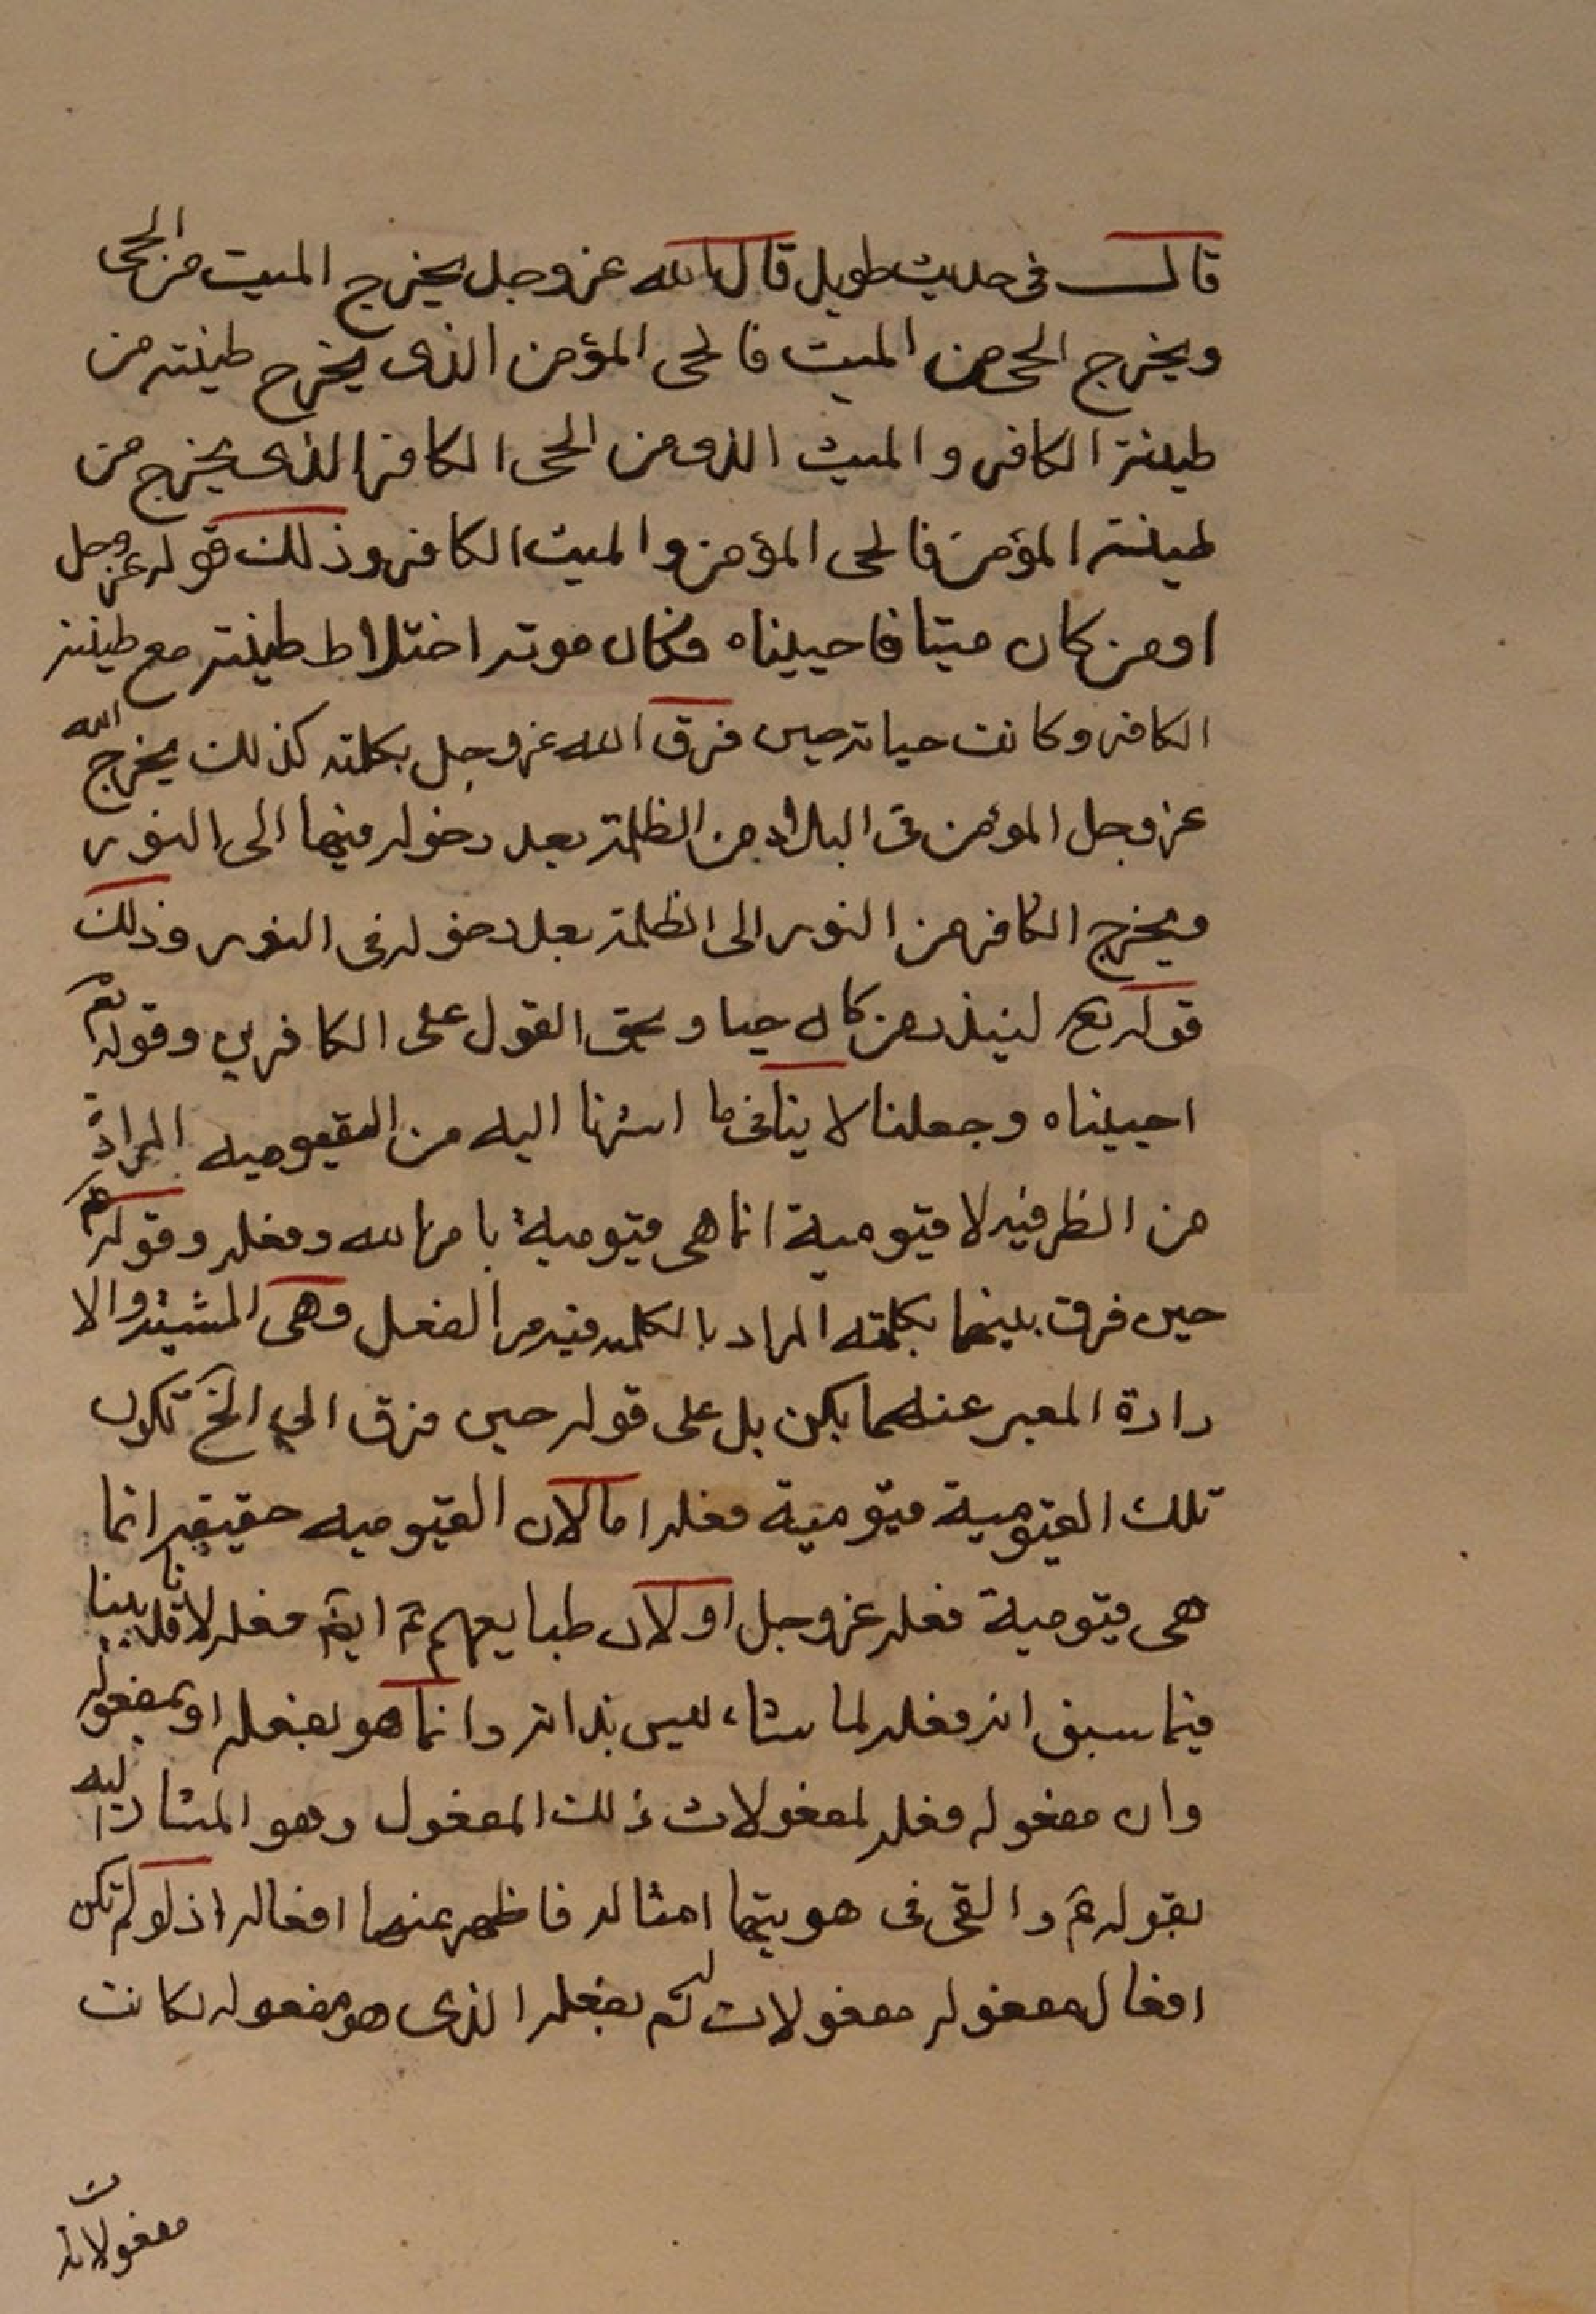 قال في حديث طويل قال الله عز وجل يخرج الميت من الحي
ويخرج الحي من الميت فالحي المؤمن الذي يخرج طينته من
طينة الكافر والميت الذي من الحي الكافر الذي يخرج من
طينة المؤمن فالحي المؤمن والميت الكافر وذلك قوله عز وجل
او من كان ميتا فاحييناه فكان موته اختلاط طينته مع طينة
الكافر وكانت حياته حين فرق الله عز وجل بكلمته كذلك يخرج الله
عز وجل المؤمن في البلاد من الظلمة بعد دخوله فيها الى النور
ويخرج الكافر من النور الى الظلمة بعد دخوله في النور وذلك
قوله تع لينذر من كان حيا ويحق القول على الكافرين وقوله تع
احييناه وجعلنا لا ينافي ما اشرنا اليه من القيومية المرادة
من الظرفية لا قيومية انما هي قيومية بامر الله وفعله وقوله ع
حين فرق بينهما بكلمته المراد بالكلمة فيه من الفعل وهي المشية والا
رادة المعبر عنهما بكن بل على قوله حين فرق الى الخ تكون
تلك القيومية قيومية فعله اما لان القيومية حقيقة انما
هي قيومية فعله عز وجل او لان طبايعهم ايض فعله لانا قد بينا
فيما سبق انه فعله لما شاء ليس بذاته وانما هو بفعله او بمفعوله
وان مفعوله فعله لمفعولات ذلك المفعول وهو المشار اليه
بقوله ع والقى في هويتها امثاله فاظهر عنها افعاله اذ لو لم تكن
افعال مفعوله مفعولات له بفعله الذي هو مفعوله لكانت
مفعولات